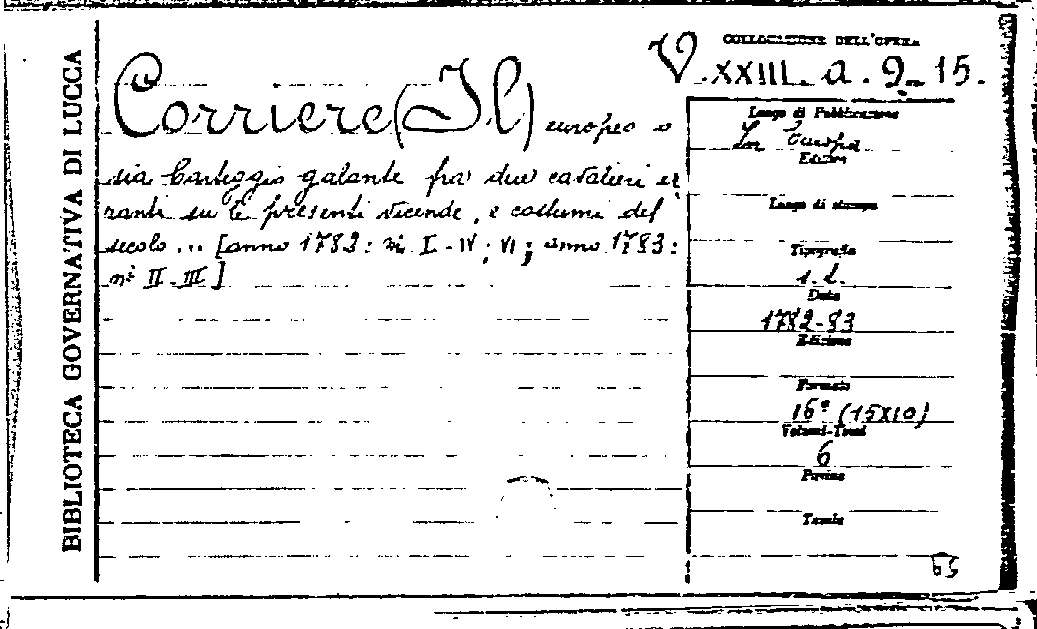 BIBLIOTECA GOVERNATIVA DI LUCCA
COLLOCAZIONE DELL'OPERA
V. XXIII. a. 9-15.
Corriere (Il) europeo o
sia Carteggio galante fra due cavalieri er
ranti su le presenti vicende, e costumi del
secolo... [anno 1782: ni I-IV; VI; anno 1783:
ni II-III]
Luogo di Pubblicazione
In Europa
Editore
Luogo di stampa
Tipografia
s.l.
Data
1782-83
Edizione
Formato
16° (15X10)
Volumi-Tomi
6
Pagine
Tavole